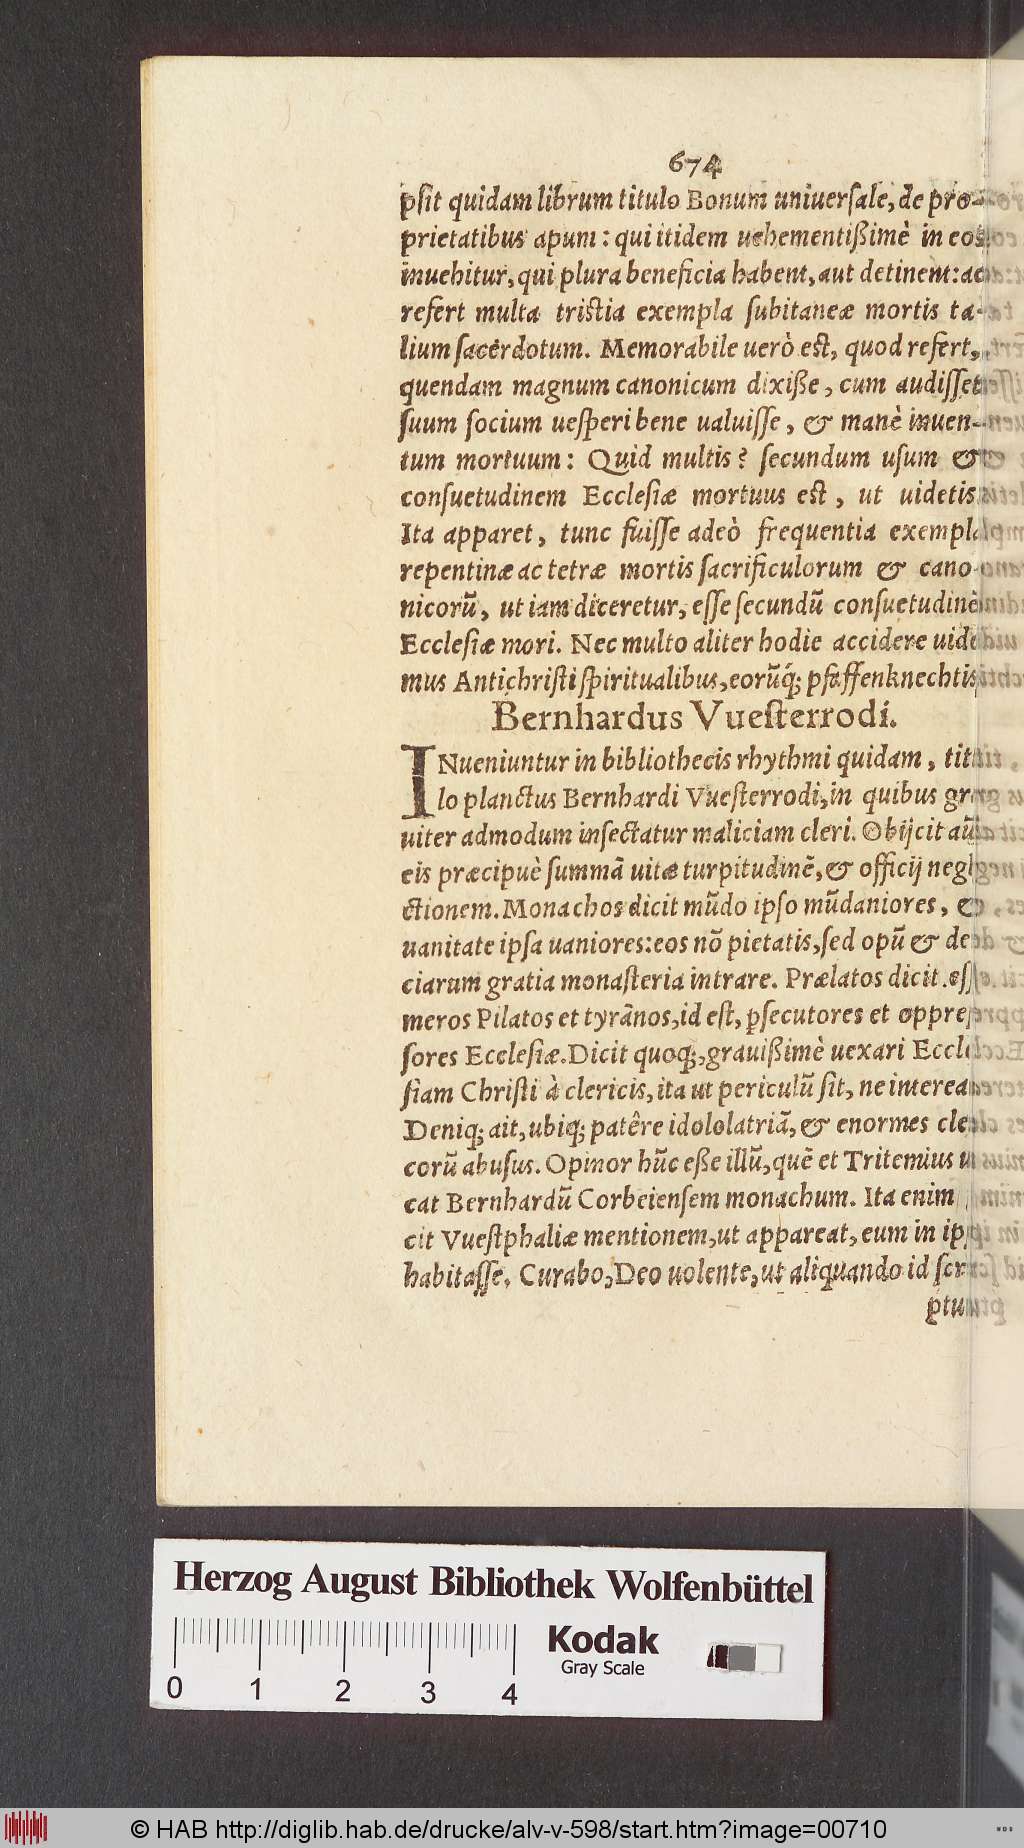 674
psit quidam librum titulo Bonum uniuersale, de pro-
prietatibus apum: qui itidem uehementißimè in eos
inuehitur, qui plura beneficia habent, aut detinent: ac
refert multa tristia exempla subitaneæ mortis ta-
lium sacerdotum. Memorabile uerò est, quod refert,
quendam magnum canonicum dixiße, cum audisset
suum socium uesperi bene ualuisse, & manè inuen-
tum mortuum: Quid multis? secundum usum &
consuetudinem Ecclesiæ mortuus est, ut uidetis
Ita apparet, tunc fuisse adeò frequentia exempla
repentinæ ac tetræ mortis sacrificulorum & cano-
nicorũ, ut iam diceretur, esse secundũ consuetudinẽ
Ecclesiæ mori. Nec multo aliter hodie accidere uide
mus Antichristi spiritualibus, eorũq́; pfaffenknechtis
Bernhardus Vuesterrodi.
INueniuntur in bibliothecis rhythmi quidam, tit
lo planctus Bernhardi Vuesterrodi, in quibus gra
uiter admodum insectatur maliciam cleri. Obijcit aũ
eis præcipuè summã uitæ turpitudinẽ, & officij negl
ctionem. Monachos dicit mũdo ipso mũdaniores, &
uanitate ipsa uaniores: eos nõ pietatis, sed opũ & de
ciarum gratia monasteria intrare. Prælatos dicit esse
meros Pilatos et tyrãnos, id est, ꝑsecutores et oppres
sores Ecclesiæ. Dicit quoq;, grauißimè uexari Eccle
siam Christi à clericis, ita ut periculũ sit, ne intereat
Deniq; ait, ubiq; patêre idololatriã, & enormes cle
corũ abusus. Opinor hũc eße illũ, quẽ et Tritemius u
cat Bernhardũ Corbeiensem monachum. Ita enim
cit Vuestphaliæ mentionem, ut appareat, eum in ip
habitasse. Curabo, Deo uolente, ut aliquando id scri
ptum
Herzog August Bibliothek Wolfenbüttel
Kodak
Gray Scale
0 1 2 3 4
© HAB http://diglib.hab.de/drucke/alv-v-598/start.htm?image=00710